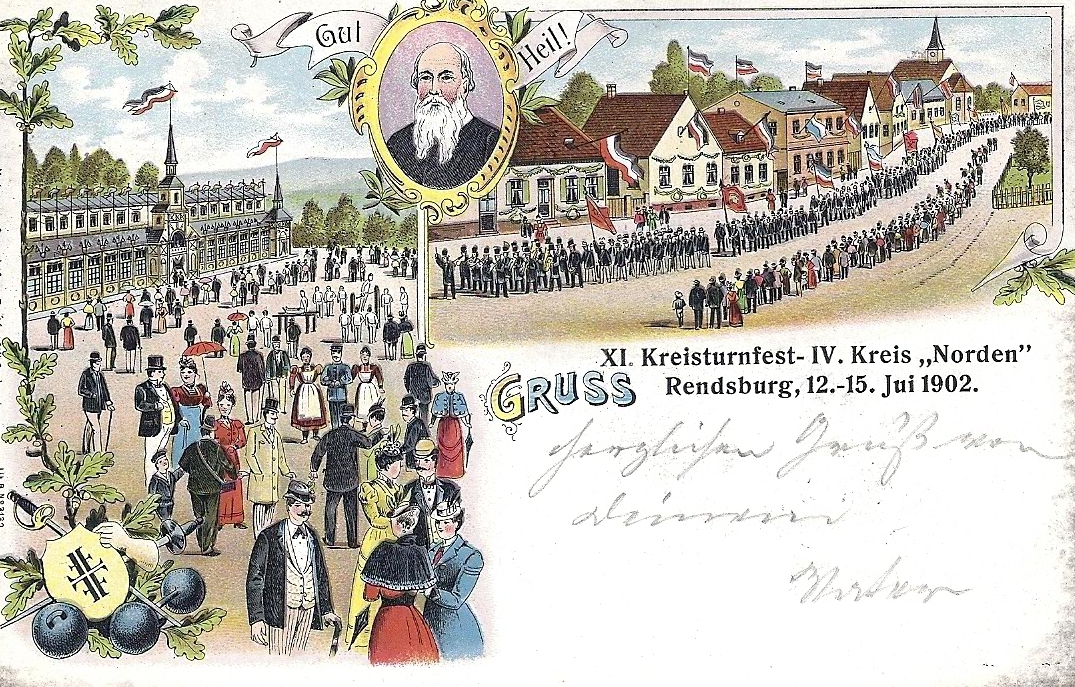 Gut Heil!
XI. Kreisturnfest- IV. Kreis „Norden”
GRUSS Rendsburg, 12.-15. Jui 1902.
Herzlichen Gruß von
Deinem
Vater